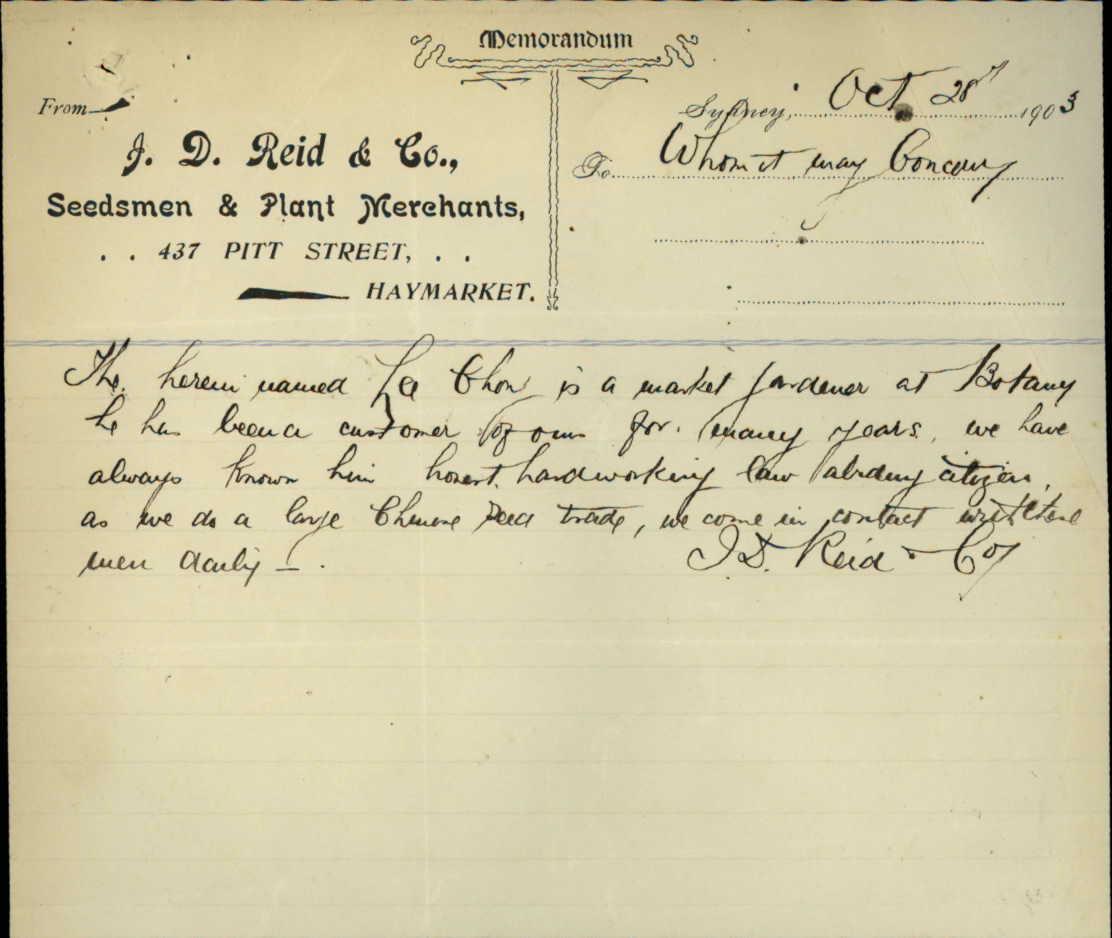 Memorandum
From
J. D. Reid & Co.,
Seedsmen & Plant Merchants,
. . 437 PITT STREET, . .
HAYMARKET.
Sydney, Oct 28th 1903
To Whom it may Concern
The herein named Chow is a market gardener at Botany
he has been a customer of ours for many years, we have
always known him honest, hardworking law abiding citizen,
as we do a large Chinese Seed trade, we come in contact with these
men daily — .
J.D. Reid & Coy